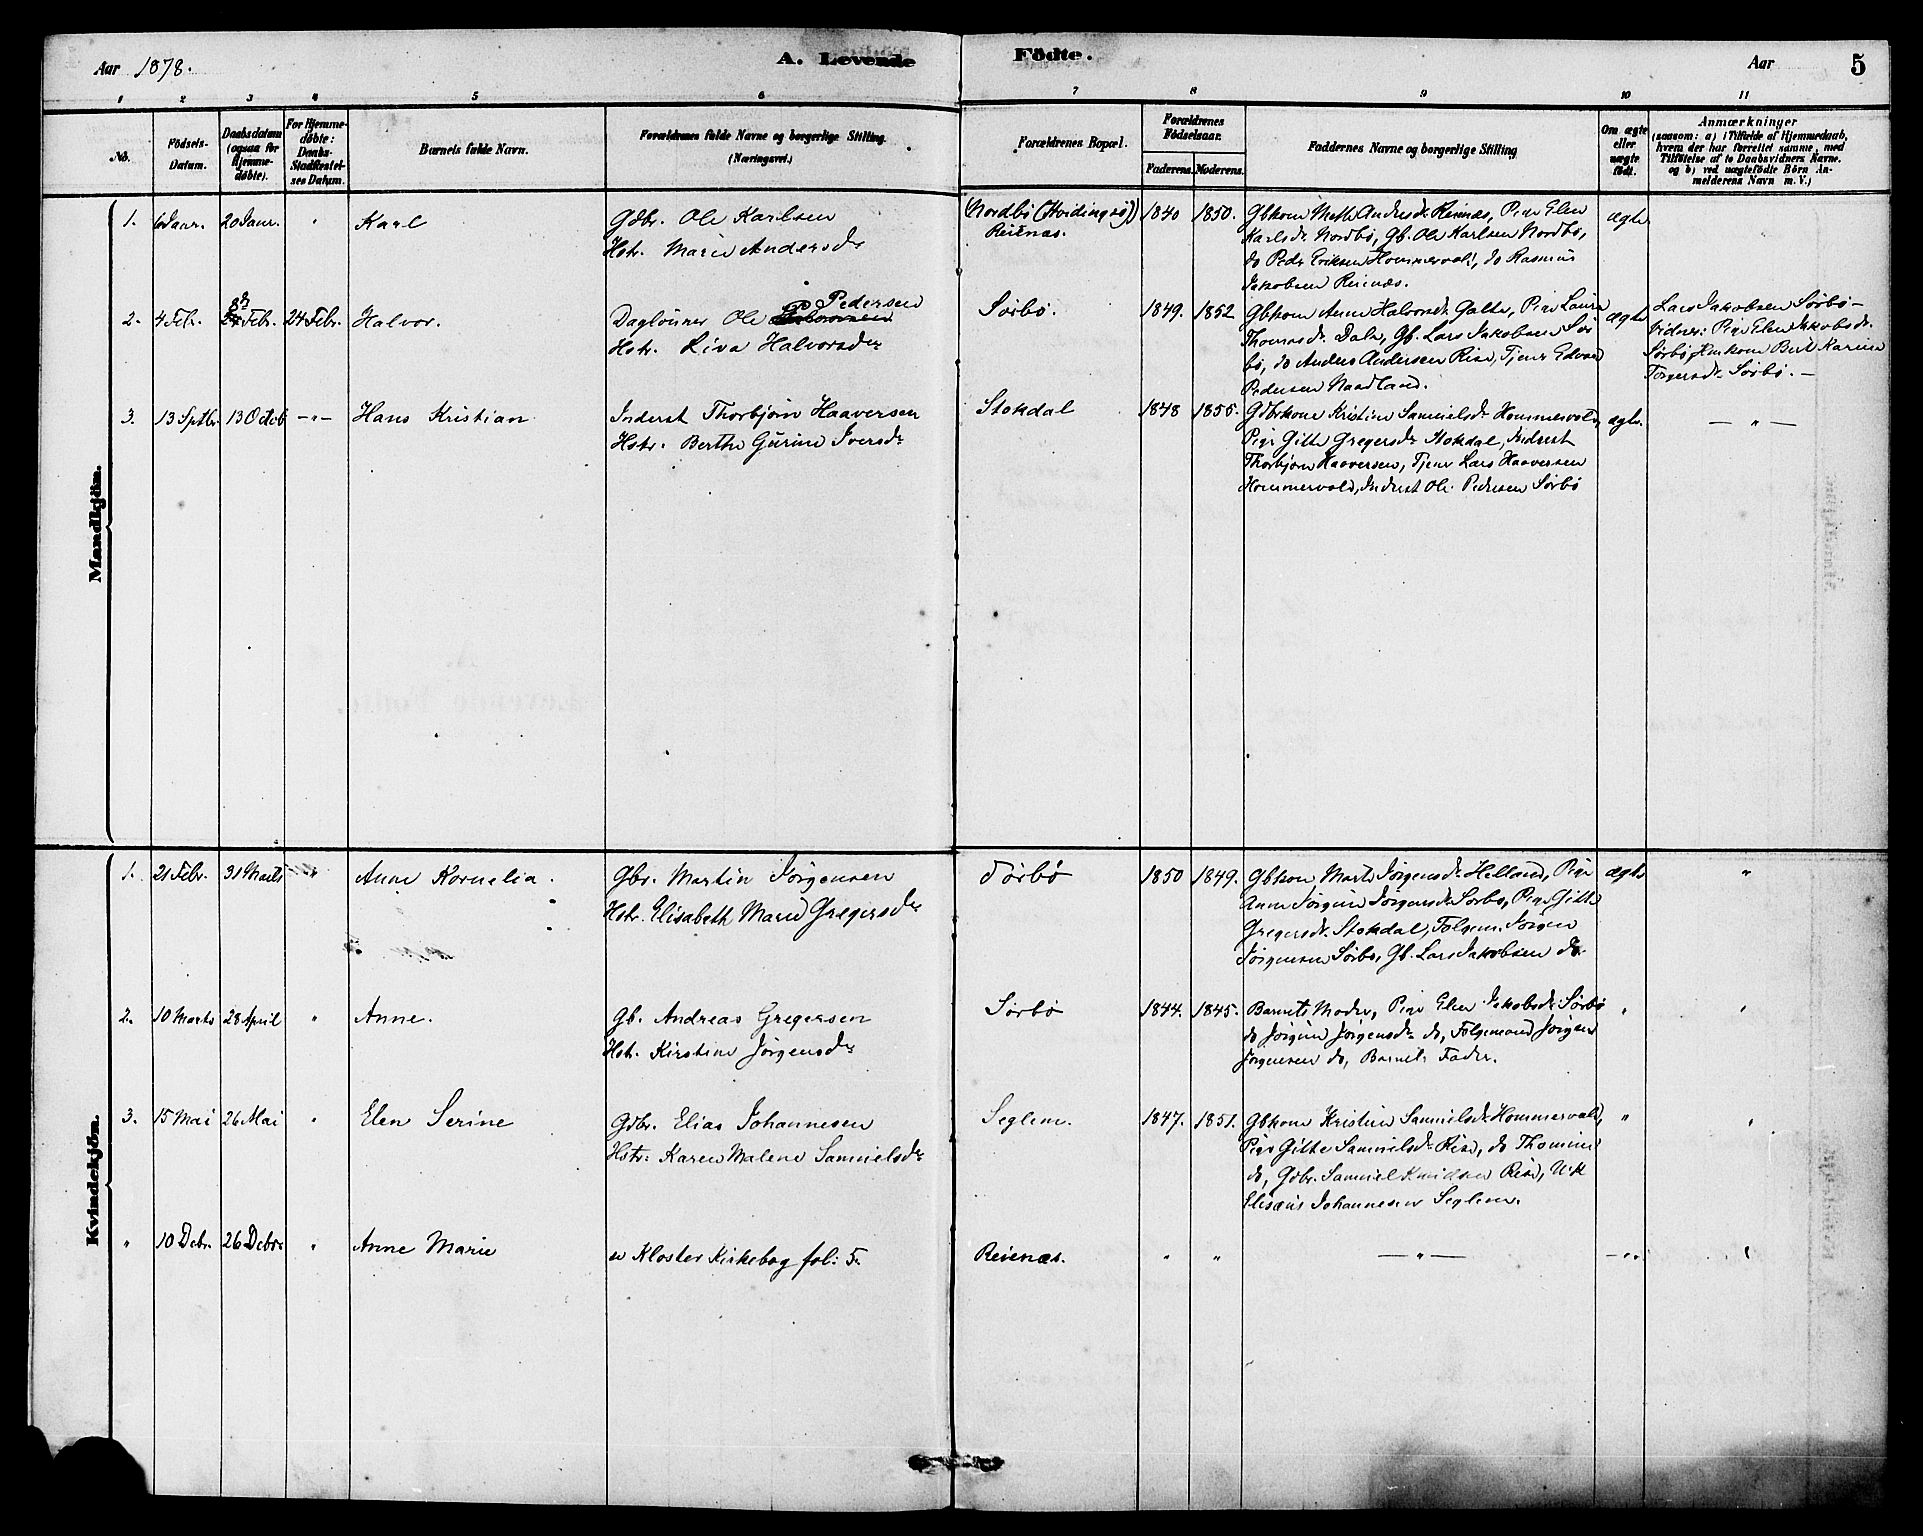 Aar 1878.
A. Levende
Födte.
Aar
5
1 2 3 4 5 6 7 8 9 10 11
No.
Födsels-
Datum.
Daabsdatum
(ogsaa for
Hjemme-
döbte).
For Hjemme-
döbte:
Daabs-
Stadfæstel-
ses Datum.
Barnets fulde Navn.
Forældrenes fulde Navne og borgerlige Stilling
(Næringsvei.)
Forældrenes Bopæl.
Forældrenes
Födselsaar.
Faderens. Moderens.
Faddernes Navne og borgerlige Stilling
Om ægte
eller
uægte
födt.
Anmærkninger
(saasom: a) i Tilfælde af Hjemmedaab,
hvem der har forrettet samme, med
Tilföielse af to Daabsvidners Navne.
og b) ved uægtefödte Börn An-
melderens Navn m. V.)
Mandkjön.
1. 6 Janr. 20 Janr. " Karl
Gdbr. Ole Karlsen
Hstr. Marie Andersdr
Nordbø (Hvidingsø)
Reienæs.
1840 1850.
Gbkone Methe Andersdr Reienæs, Pige Elen
Karlsdr Nordbø, Gb. Ole Karlsen Nordbø,
do Peder Eriksen Hommervold, do Rasmus
Jakobsen Reienæs.
ægte
2. 4 Febr. 8de Febr. 24 Febr. Halvor.
Pedersen
Daglønner Ole
Hstr. Liva Halvorsdr
Sørbø.
1849. 1852
Gbkone Anne Halvorsdr Galta, Pige Laura
Thomasdr Dale, Gb. Lars Jakobsen Sør
bø, do Anders Andersen Rise, Tjener Edvard
Pedersen Naadland.
ægte
Lars Jakobsen Sørbø -
Vidner: Pige Elen Jakobsdr
Sørbø, Huskone Berit Karine
Torgersdr Sørbø. -
3. 13 Septbr. 13 Octob - " - Hans Kristian
Inderst Thorbjørn Haaversen
Hstr. Berthe Gurine Iversdr
Stokdal
1848 1855.
Gdbrkone Kristine Samuelsdr Hommervold,
Pige Gitte Gregersdr Stokdal, Inderst
Thorbjørn Haaversen, Tjener Lars Haaversen
Hommervold, Inderst Ole Pedersen Sørbø
ægte.
- " -
Kvindekjön.
1. 21 Febr. 31 Marts " Anne Kornelia.
Gbr. Martin Jørgensen
Hstr. Elisabeth Marie Gregersdr
Sørbø
1850 1849.
Gbkone Marte Jørgensdr Helland, Pige
Anne Jørgine Jørgensdr Sørbø, Pige Gitte
Gregersdr Stokdal, Folgem. Jørgen
Jørgensen Sørbø, Gb. Lars Jakobsen do
ægte
"
2. 10 Marts 28 April " Anne.
Gb. Andreas Gregersen
Hst. Kirstine Jørgensdr
Sørbø
1844. 1845.
Barnets Moder, Pige Elen Jakobsdr Sørbø
do Jørgine Jørgensdr do, Folgemand Jørgen
Jørgensen do, Barnets Fader.
" "
3. 15 Mai 26 Mai " Elen Serine
Gdbr. Elias Johannesen
Hstr: Karen Malene Samuelsdr
Seglem.
1847. 1851.
Gbkone Kristine Samuelsdr Hommervold,
Pige Gitte Samuelsdr Rise, do Thomine
do, Gdbr. Samuel Knudsen Rise, Uk
Elisæus Johannesen Seglem.
" "
" 10 Debr. 26 Debr. " Anne Marie
se Kloster Kirkebog fol: 5.
Reienæs.
" " - " - - " - "